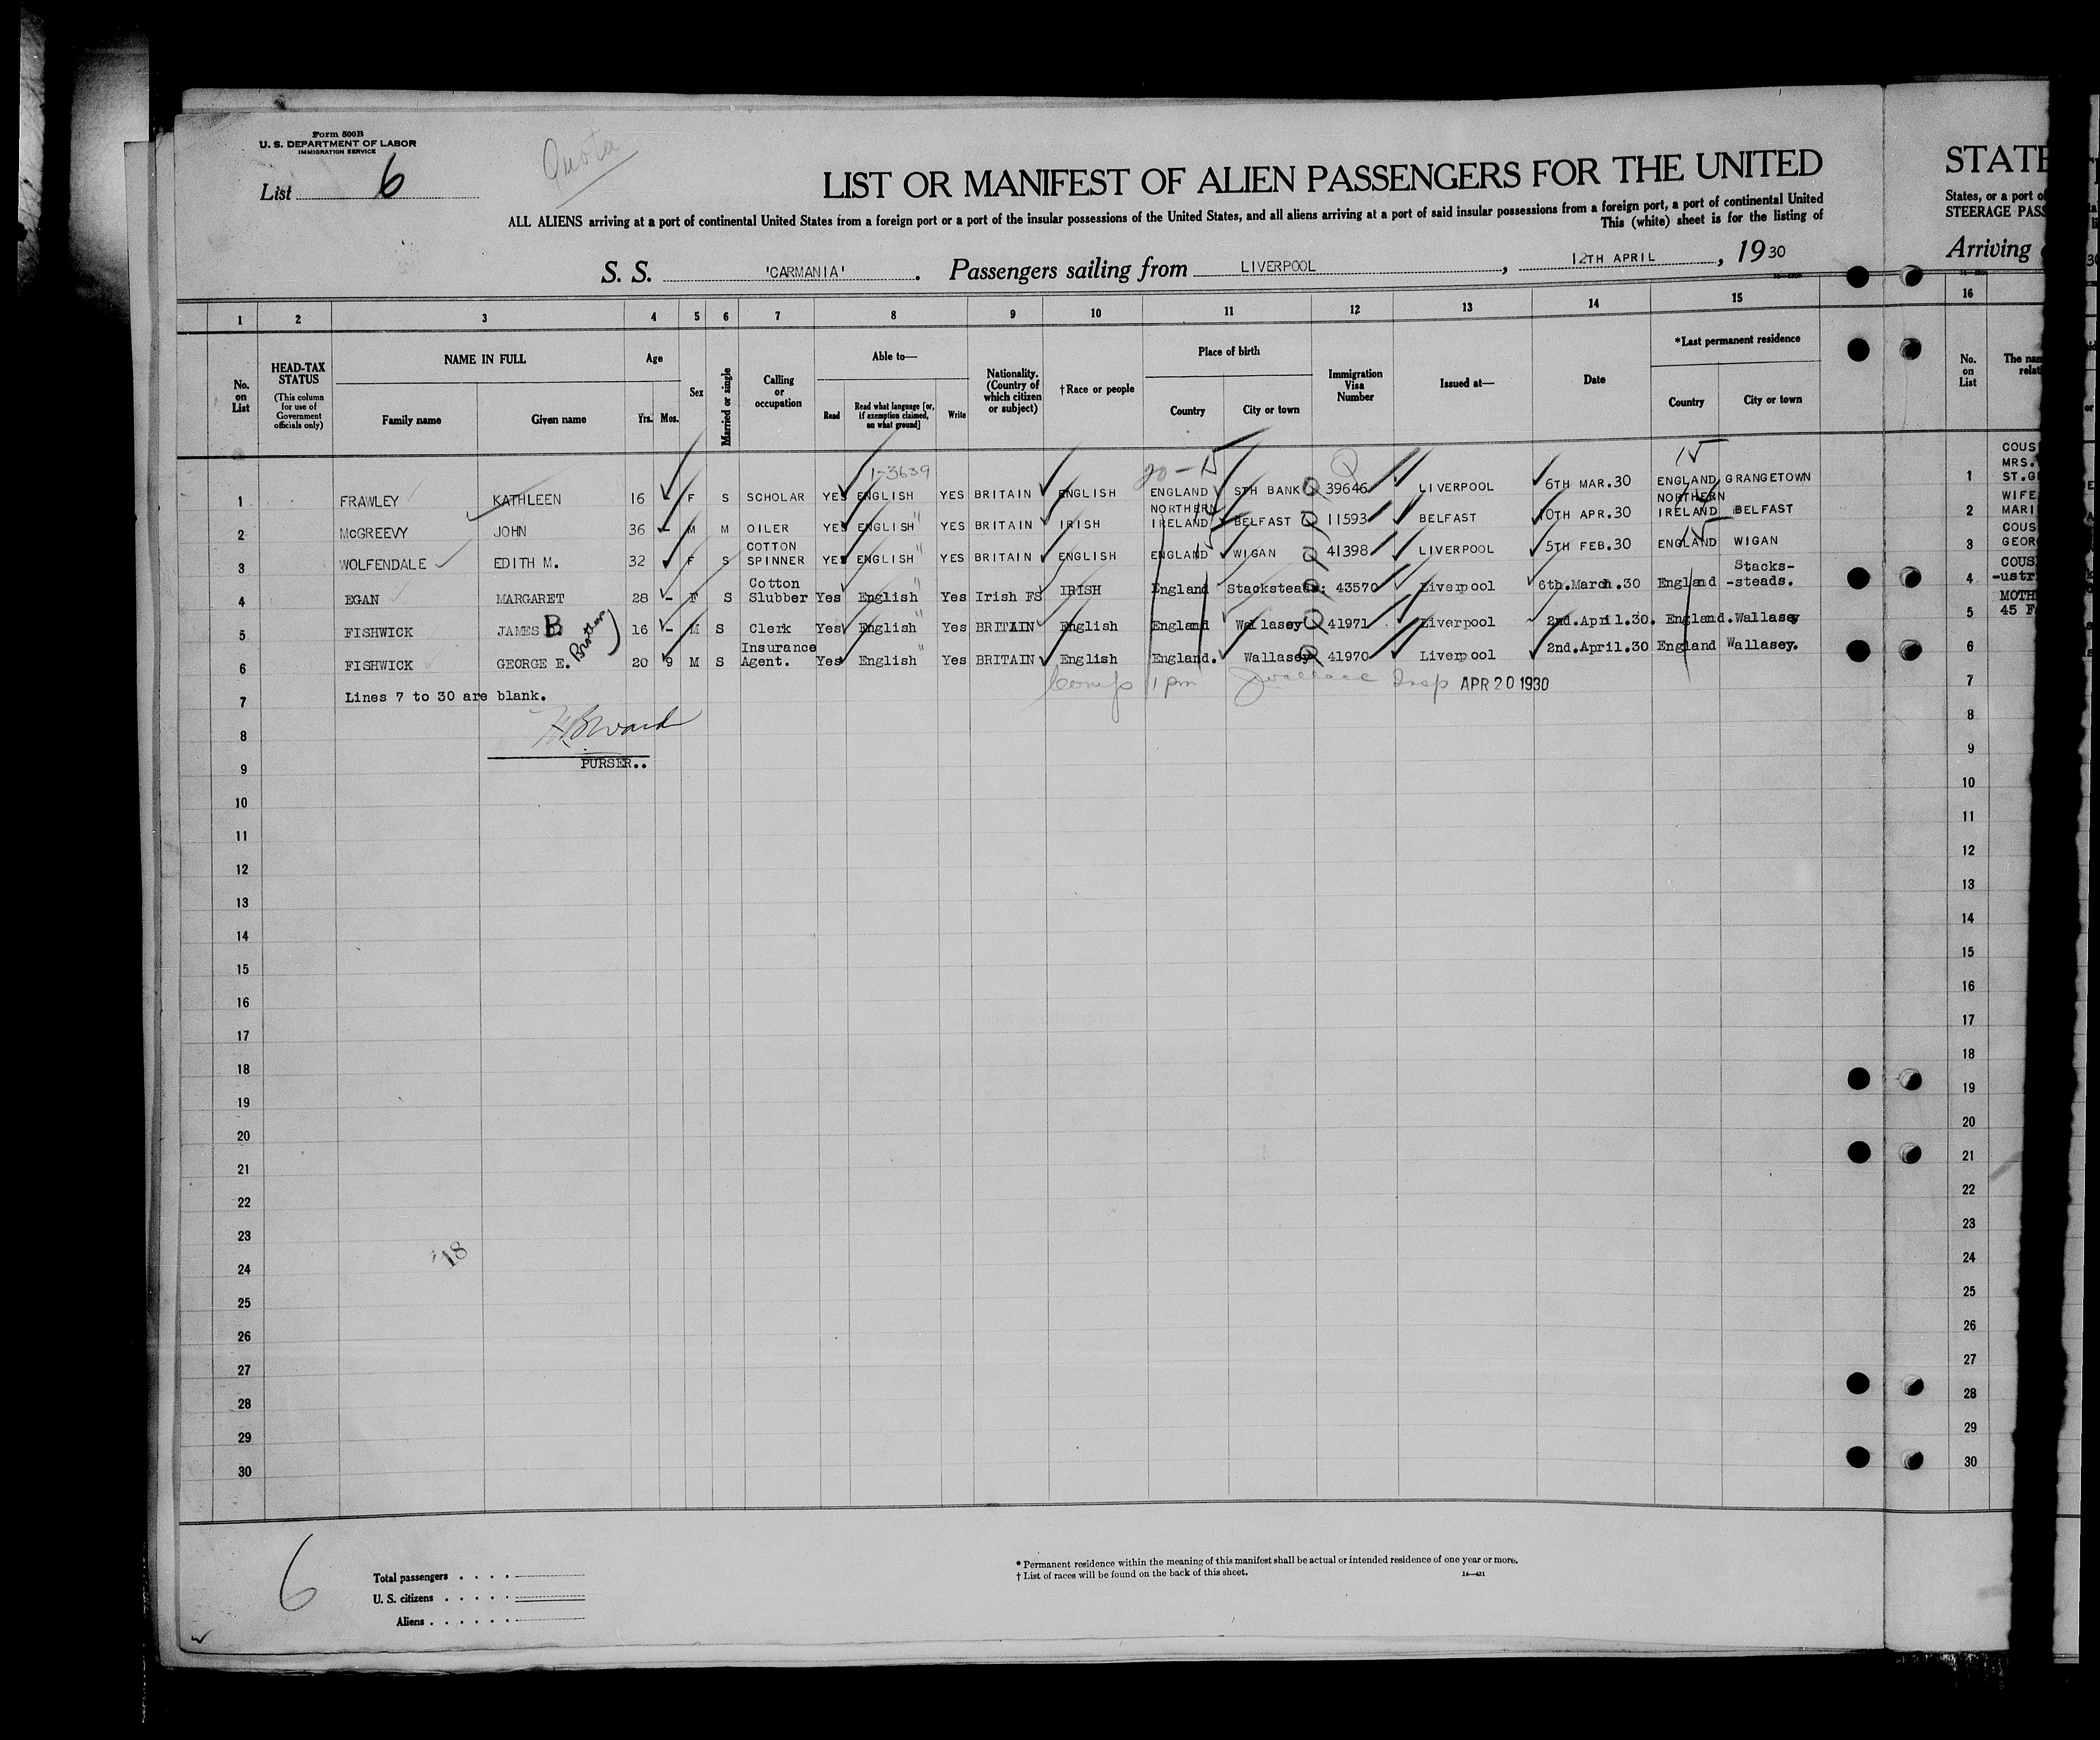 Form 500B
U. S. DEPARTMENT OF LABOR
IMMIGRATION SERVICE
Quota
List 6
LIST OR MANIFEST OF ALIEN PASSENGERS FOR THE UNITED
STATE
ALL ALIENS arriving at a port of continental United States from a foreign port or a port of the insular possessions of the United States, and all aliens arriving at a port of said insular possessions from a foreign port, a port of continental United
This (white) sheet is for the listing of
States, or a port of
STEERAGE PASS
S. S. 'CARMANIA'. Passengers sailing from LIVERPOOL, 12TH APRIL, 1930
Arriving
1 2 3 4 5 6 7 8 9 10 11 12 13 14 15 16
No. on List
HEAD-TAX STATUS (This column for use of Government officials only)
NAME IN FULL
Family name Given name
Age
Yrs. Mos.
Sex
Married or single
Calling or occupation
Able to—
Read Read what language [or, if exemption claimed, on what ground] Write
Nationality. (Country of which citizen or subject)
†Race or people
Place of birth
Country City or town
Immigration Visa Number
Issued at—
Date
*Last permanent residence
Country City or town
No. on List
The nam
relati
1-3639
20 - 15 Q 15
1 FRAWLEY KATHLEEN 16 F S SCHOLAR YES ENGLISH YES BRITAIN ENGLISH ENGLAND STH BANK Q 39646 LIVERPOOL 6TH MAR.30 ENGLAND GRANGETOWN 1 COUS MRS. ST.G
2 McGREEVY JOHN 36 - M M OILER YES ENGLISH " YES BRITAIN IRISH NORTHERN IRELAND BELFAST Q 11593 BELFAST 10TH APR.30 NORTHERN IRELAND BELFAST 2 WIFE MARI
3 WOLFENDALE EDITH M. 32 F S COTTON SPINNER YES ENGLISH " YES BRITAIN ENGLISH ENGLAND WIGAN Q 41398 LIVERPOOL 5TH FEB.30 ENGLAND WIGAN 3 COUS GEOR
4 EGAN MARGARET 28 - F S Cotton Slubber Yes English " Yes Irish FS IRISH England Stacksteads: 43570 Liverpool 6th.March.30 England Stacks- -steads. 4 COUS -ustr
5 FISHWICK JAMES B. Brothers 16 - M S Clerk Yes English " Yes BRITAIN English England Wallasey Q 41971 Liverpool 2nd.April.30. England.Wallasey 5 MOTH 45 F
6 FISHWICK GEORGE E. 20 9 M S Insurance Agent. Yes English " Yes BRITAIN English England. Wallasey Q 41970 Liverpool 2nd.April.30 England Wallasey. 6
7 Lines 7 to 30 are blank. 1 pm Insp APR 20 1930 7
8 8
PURSER..
9 9
10 10
11 11
12 12
13 13
14 14
15 15
16 16
17 17
18 18
19 19
20 20
21 21
22 22
23 23
18
24 24
25 25
26 26
27 27
28 28
29 29
30 30
6
Total passengers . . . .
U. S. citizens . . . . .
Aliens . . . . . .
* Permanent residence within the meaning of this manifest shall be actual or intended residence of one year or more.
† List of races will be found on the back of this sheet.